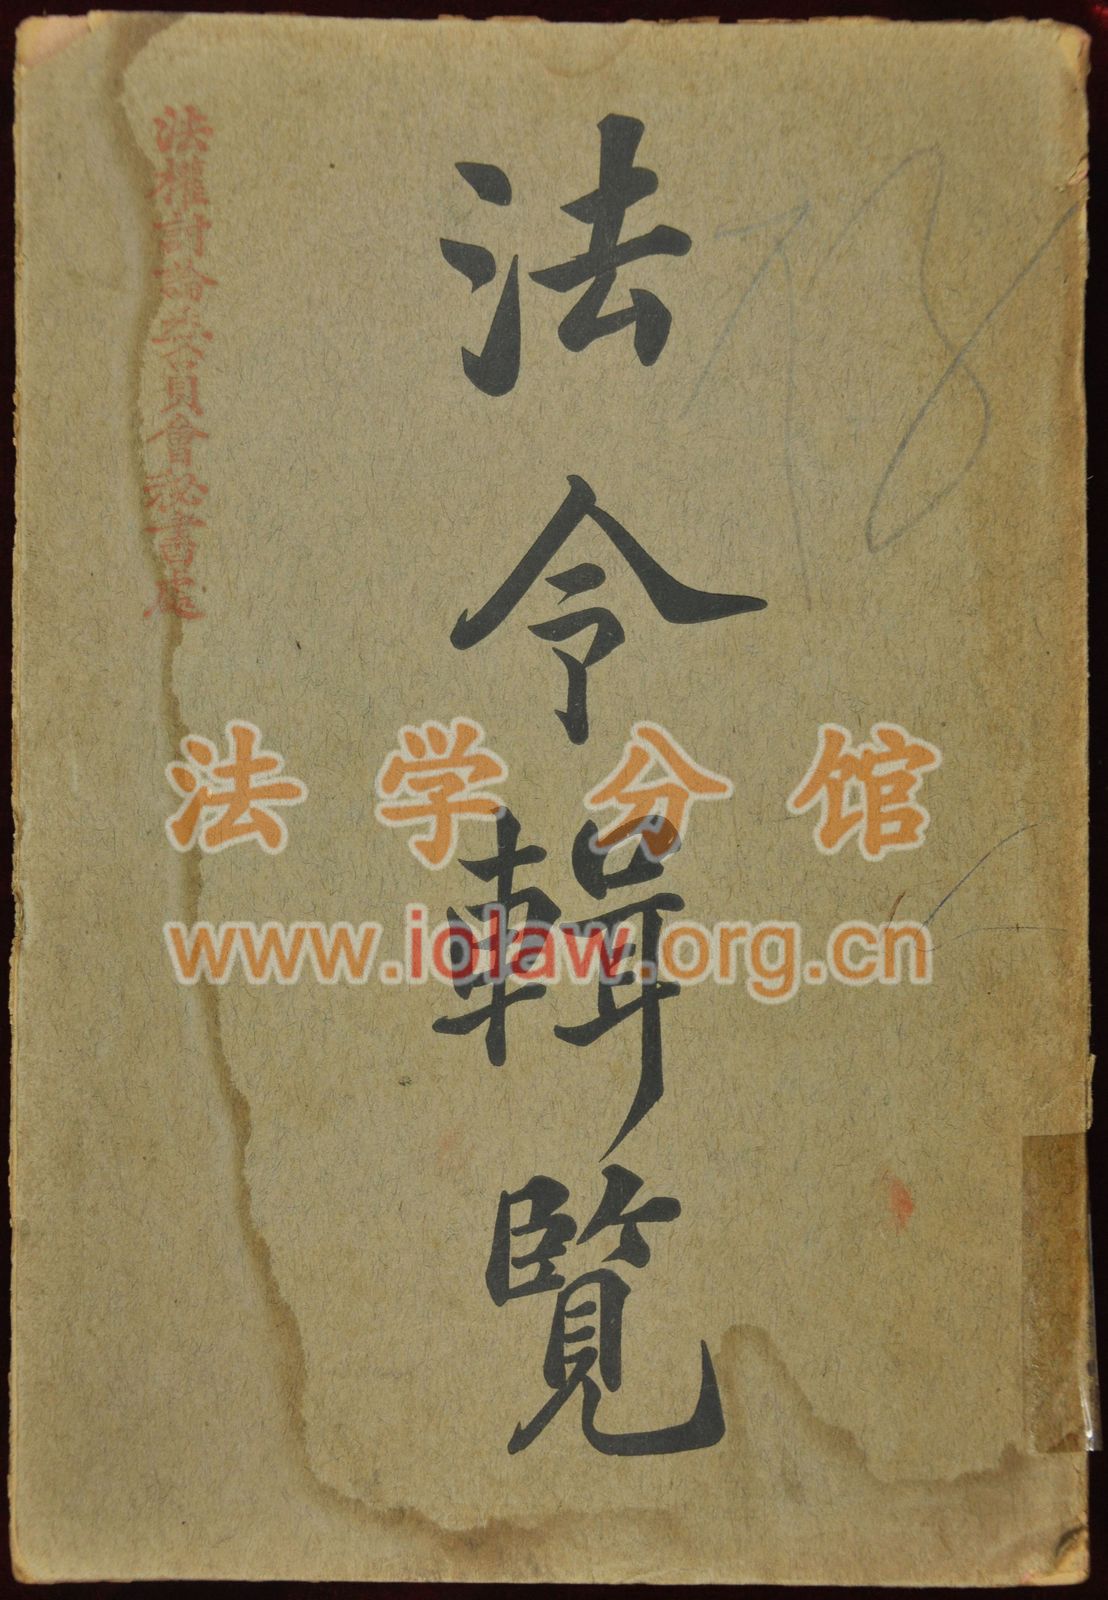 法令輯覽
法權討論委員會秘書處
78
法学分馆
www.iolaw.org.cn